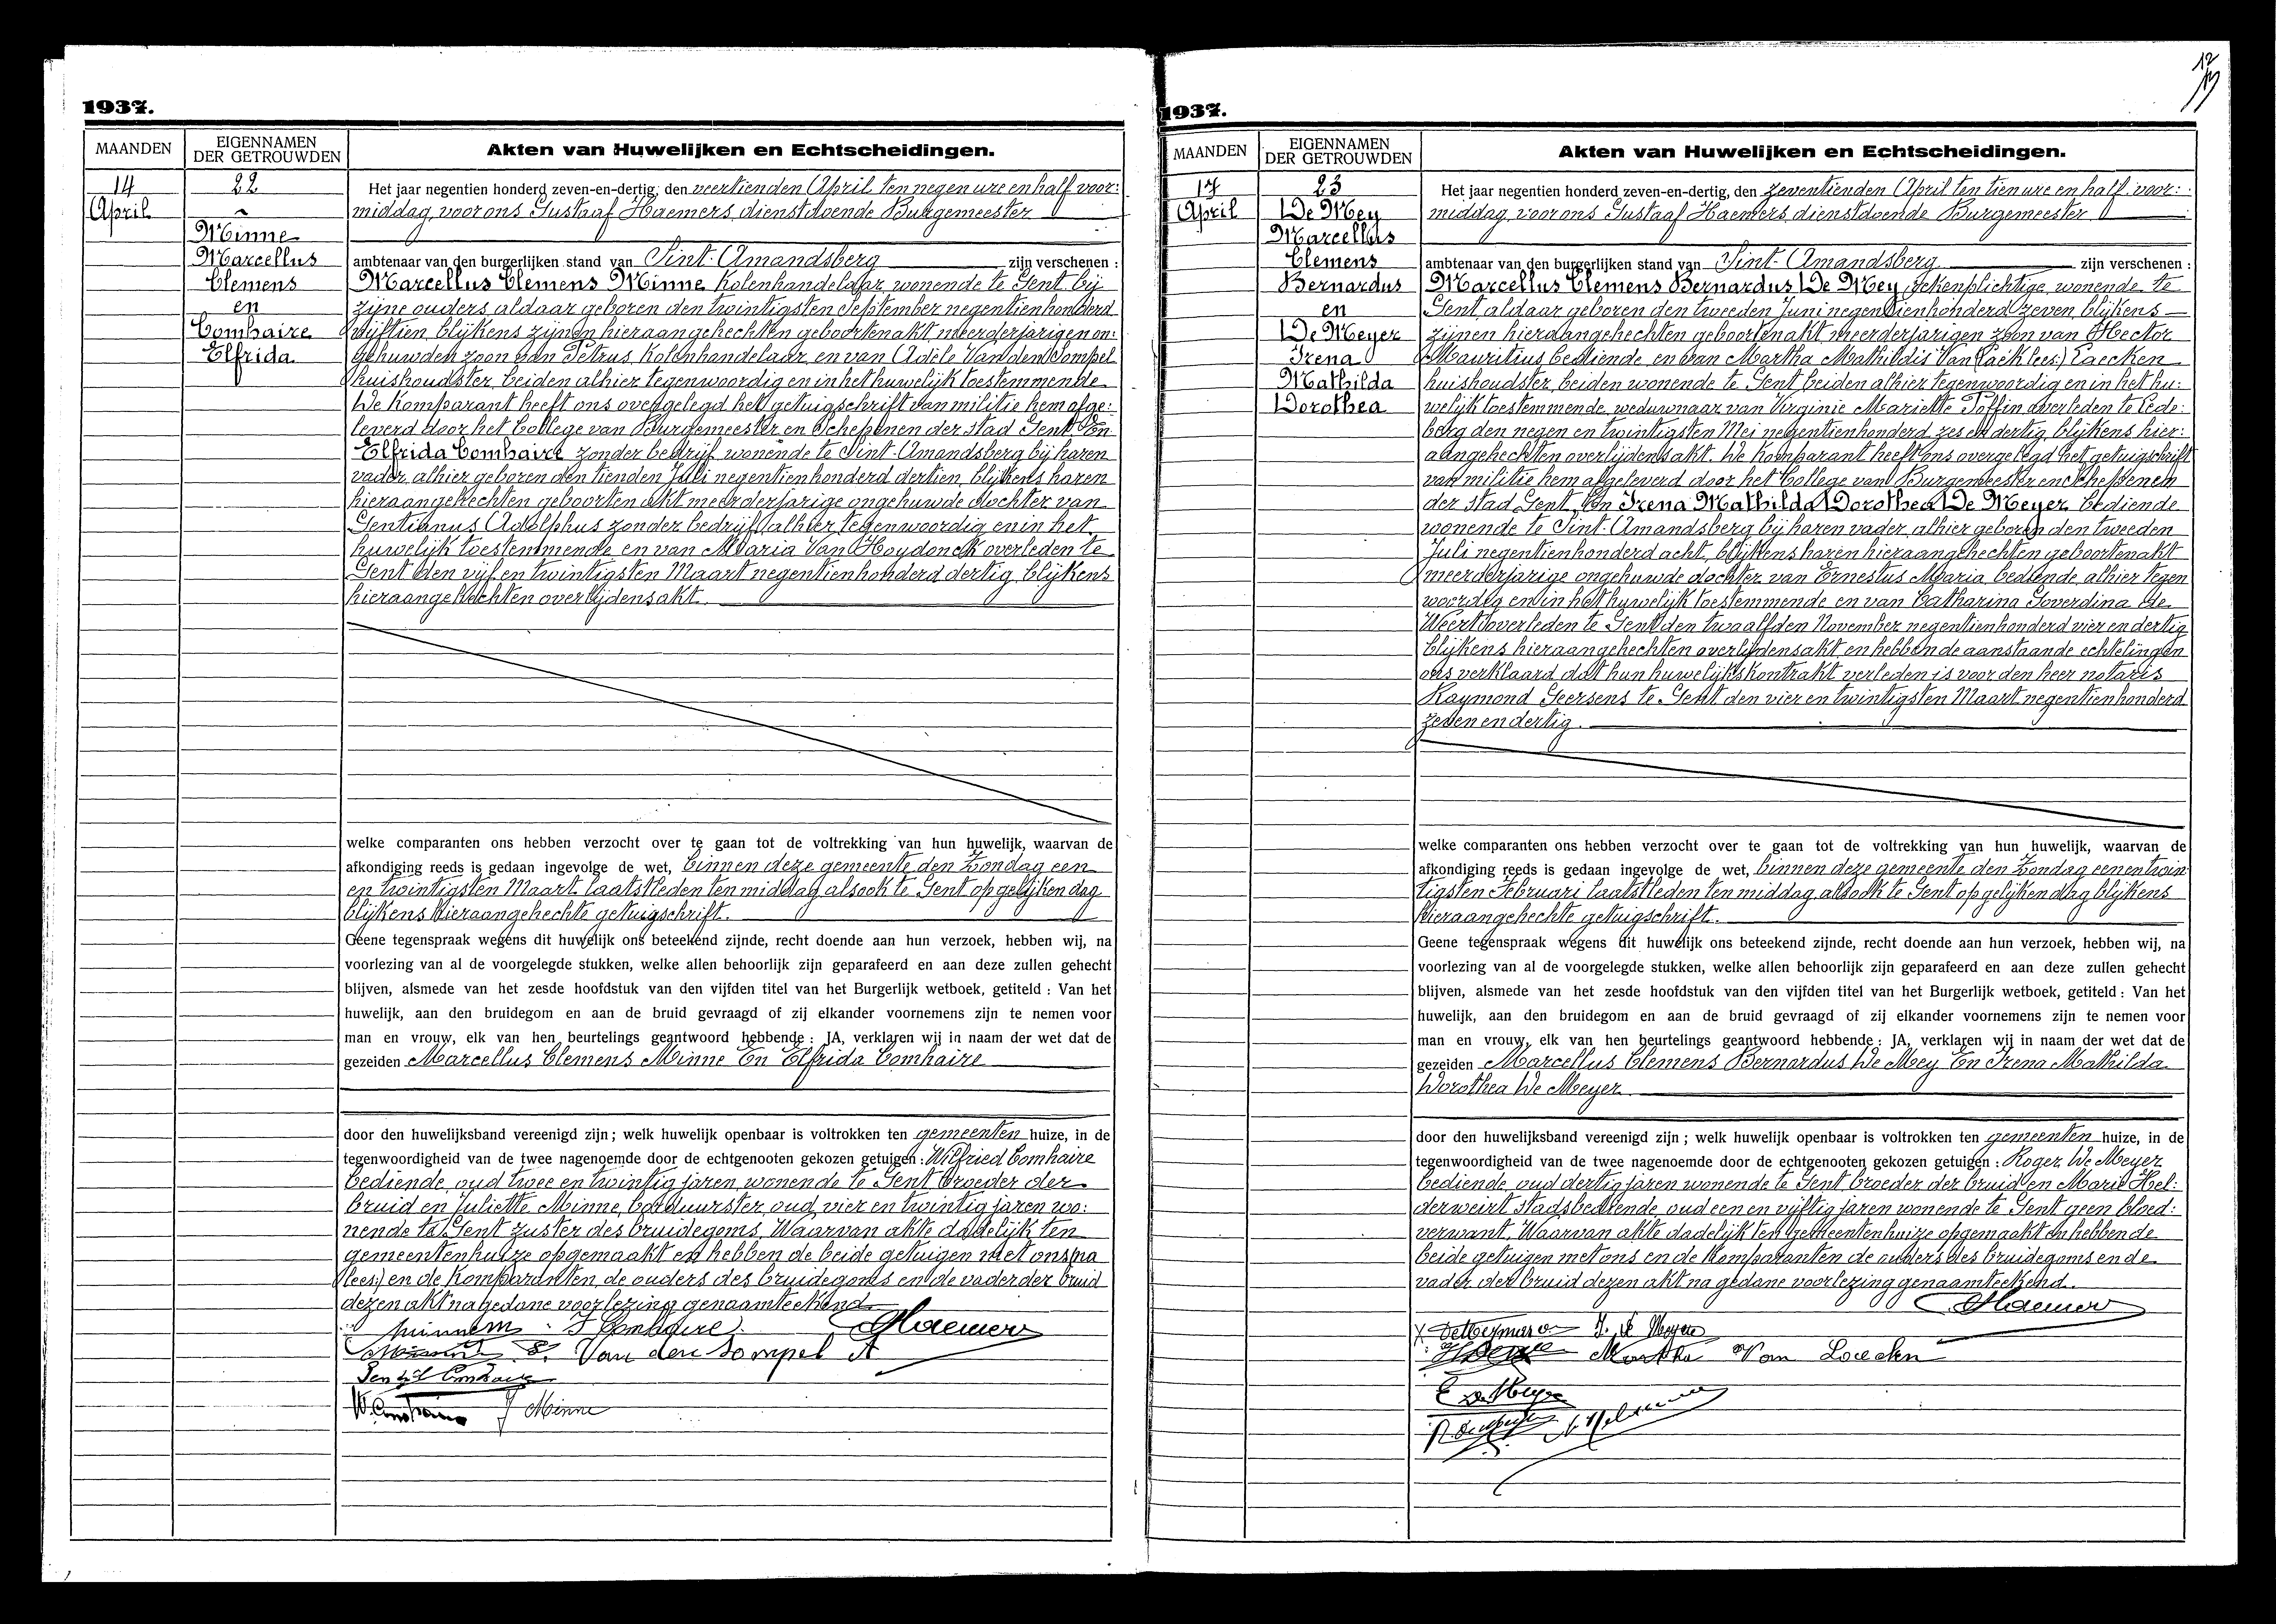 1937.
MAANDEN
EIGENNAMEN
DER GETROUWDEN
Akten van Huwelijken en Echtscheidingen.
14
April
22
Minne
Marcellus
Clemens
en
Comhaire
Elfrida
Het jaar negentien honderd zeven-en-dertig, den veertienden April ten negen ure en half voor:
middag, voor ons Gustaaf Haemers, dienstdoende Burgemeester
ambtenaar van den burgerlijken stand van Sint-Amandsberg zijn verschenen :
Marcellus Clemens Minne Kolenhandelaar, wonende te Gent bij
zijne ouders, aldaar geboren den twintigsten September negentienhonderd
vijftien, blijkens zijnen hieraangehechten geboortenakt, meerderjarigen on:
gehuwden zoon van Petrus, Kolenhandelaar, en van Adèle Van den Sompel
huishoudster, beiden alhier tegenwoordig en in het huwelijk toestemmende.
De Komparant heeft ons overgelegd het getuigschrift van militie hem afge:
leverd door het College van Burgemeester en Schepenen der stad Gent. En
Elfrida Comhaire zonder bedrijf wonende te Sint-Amandsberg bij haren
vader, alhier geboren den tienden Juli negentienhonderd dertien, blijkens haren
hieraangehechten geboortenakt meerderjarige ongehuwde dochter van
Gentianus Adolphus zonder bedrijf, alhier tegenwoordig en in het
huwelijk toestemmende en van Maria Van Hoydonck overleden te
Gent den vijf en twintigsten Maart negentienhonderd dertig, blijkens
hieraangehechten overlijdensakt.
welke comparanten ons hebben verzocht over te gaan tot de voltrekking van hun huwelijk, waarvan de
afkondiging reeds is gedaan ingevolge de wet, binnen deze gemeente den Zondag een
en twintigsten Maart laatstleden ten middag alsook te Gent op gelijken dag
blijkens hieraangehechte getuigschrift.
Geene tegenspraak wegens dit huwelijk ons beteekend zijnde, recht doende aan hun verzoek, hebben wij, na
voorlezing van al de voorgelegde stukken, welke allen behoorlijk zijn geparafeerd en aan deze zullen gehecht
blijven, alsmede van het zesde hoofdstuk van den vijfden titel van het Burgerlijk wetboek, getiteld : Van het
huwelijk, aan den bruidegom en aan de bruid gevraagd of zij elkander voornemens zijn te nemen voor
man en vrouw, elk van hen beurtelings geantwoord hebbende : JA, verklaren wij in naam der wet dat de
gezeiden Marcellus Clemens Minne En Elfrida Comhaire
door den huwelijksband vereenigd zijn ; welk huwelijk openbaar is voltrokken ten gemeenten huize, in de
tegenwoordigheid van de twee nagenoemde door de echtgenooten gekozen getuigen : Wilfried Comhaire
bediende, oud twee en twintig jaren, wonende te Gent broeder der
bruid en Juliette Minne, borduurster, oud vier en twintig jaren wo:
nende te Gent zuster des bruidegoms. Waarvan akte dadelijk ten
gemeentenhuize opgemaakt en hebben de beide getuigen met ons (na
lees:) en de Komparanten, de ouders des bruidegoms en de vader der bruid
dezen akt na gedane voorlezing genaamteekend.
Minne m. E Comhaire. GHaemers
Minne P. Van den Sompel A
Gent Comhaire
W. Comhaire J Minne
1937.
MAANDEN
EIGENNAMEN
DER GETROUWDEN
Akten van Huwelijken en Echtscheidingen.
17
April
23
De Mey
Marcellus
Clemens
Bernardus
en
De Meyer
Irena
Mathilda
Dorothea
Het jaar negentien honderd zeven-en-dertig, den zeventienden April ten tien ure en half voor:
middag, voor ons Gustaaf Haemers, dienstdoende Burgemeester
ambtenaar van den burgerlijken stand van Sint-Amandsberg zijn verschenen :
Marcellus Clemens Bernardus De Mey, rekenplichtige, wonende te
Gent, aldaar geboren den tweeden Juni negentienhonderd zeven, blijkens
zijnen hieraangehechten geboortenakt, meerderjarigen zoon van Hector
Mauritius, bediende, en van Martha Mathildis Van (Laek lees:) Laecken
huishoudster, beiden wonende te Gent beiden alhier tegenwoordig en in het hu:
welijk toestemmende, weduwnaar van Virginie Mariette Toffin overleden te Lede:
berg den negen en twintigsten Mei negentienhonderd zes en dertig, blijkens hier:
aangehechten overlijdensakt. De Komparant heeft ons overgelegd het getuigschrift
van militie hem afgeleverd door het College van Burgemeester en Schepenen
der stad Gent. En Irena Mathilda Dorothea De Meyer bediende
wonende te Sint-Amandsberg bij haren vader, alhier geboren den tweeden
Juli negentienhonderd acht, blijkens haren hieraangehechten geboortenakt
meerderjarige ongehuwde dochter van Ernestus Maria, bediende, alhier tegen
woordig en in het huwelijk toestemmende en van Catharina Goverdina de
Weert overleden te Gent den twaalfden November negentienhonderd vier en dertig
blijkens hieraangehechten overlijdensakt, en hebben de aanstaande echtelingen
ons verklaard dat hun huwelijkskontrakt verleden is voor den heer notaris
Raymond Geersens te Gent den vier en twintigsten Maart negentienhonderd
zeven en dertig.
welke comparanten ons hebben verzocht over te gaan tot de voltrekking van hun huwelijk, waarvan de
afkondiging reeds is gedaan ingevolge de wet, binnen deze gemeente den Zondag een en twin
tigsten Februari laatstleden ten middag, alsook te Gent op gelijken dag blijkens
hieraangehechte getuigschrift.
Geene tegenspraak wegens dit huwelijk ons beteekend zijnde, recht doende aan hun verzoek, hebben wij, na
voorlezing van al de voorgelegde stukken, welke allen behoorlijk zijn geparafeerd en aan deze zullen gehecht
blijven, alsmede van het zesde hoofdstuk van den vijfden titel van het Burgerlijk wetboek, getiteld : Van het
huwelijk, aan den bruidegom en aan de bruid gevraagd of zij elkander voornemens zijn te nemen voor
man en vrouw, elk van hen beurtelings geantwoord hebbende : JA, verklaren wij in naam der wet dat de
gezeiden Marcellus Clemens Bernardus De Mey En Irena Mathilda
Dorothea De Meyer
door den huwelijksband vereenigd zijn ; welk huwelijk openbaar is voltrokken ten gemeenten huize, in de
tegenwoordigheid van de twee nagenoemde door de echtgenooten gekozen getuigen : Roger De Meyer
bediende, oud dertig jaren wonende te Gent, broeder der bruid en Marie Hel:
derweirt Stadsbediende, oud een en vijftig jaren wonende te Gent geen bloed:
verwant. Waarvan akte dadelijk ten gemeentenhuize opgemaakt en hebben de
beide getuigen met ons en de Komparanten de ouders des bruidegoms en de
vader der bruid dezen akt na gedane voorlezing genaamteekend.
GHaemers
I. De Meyer
Martha Van Laecken
E De Meyer
R. De Meyer